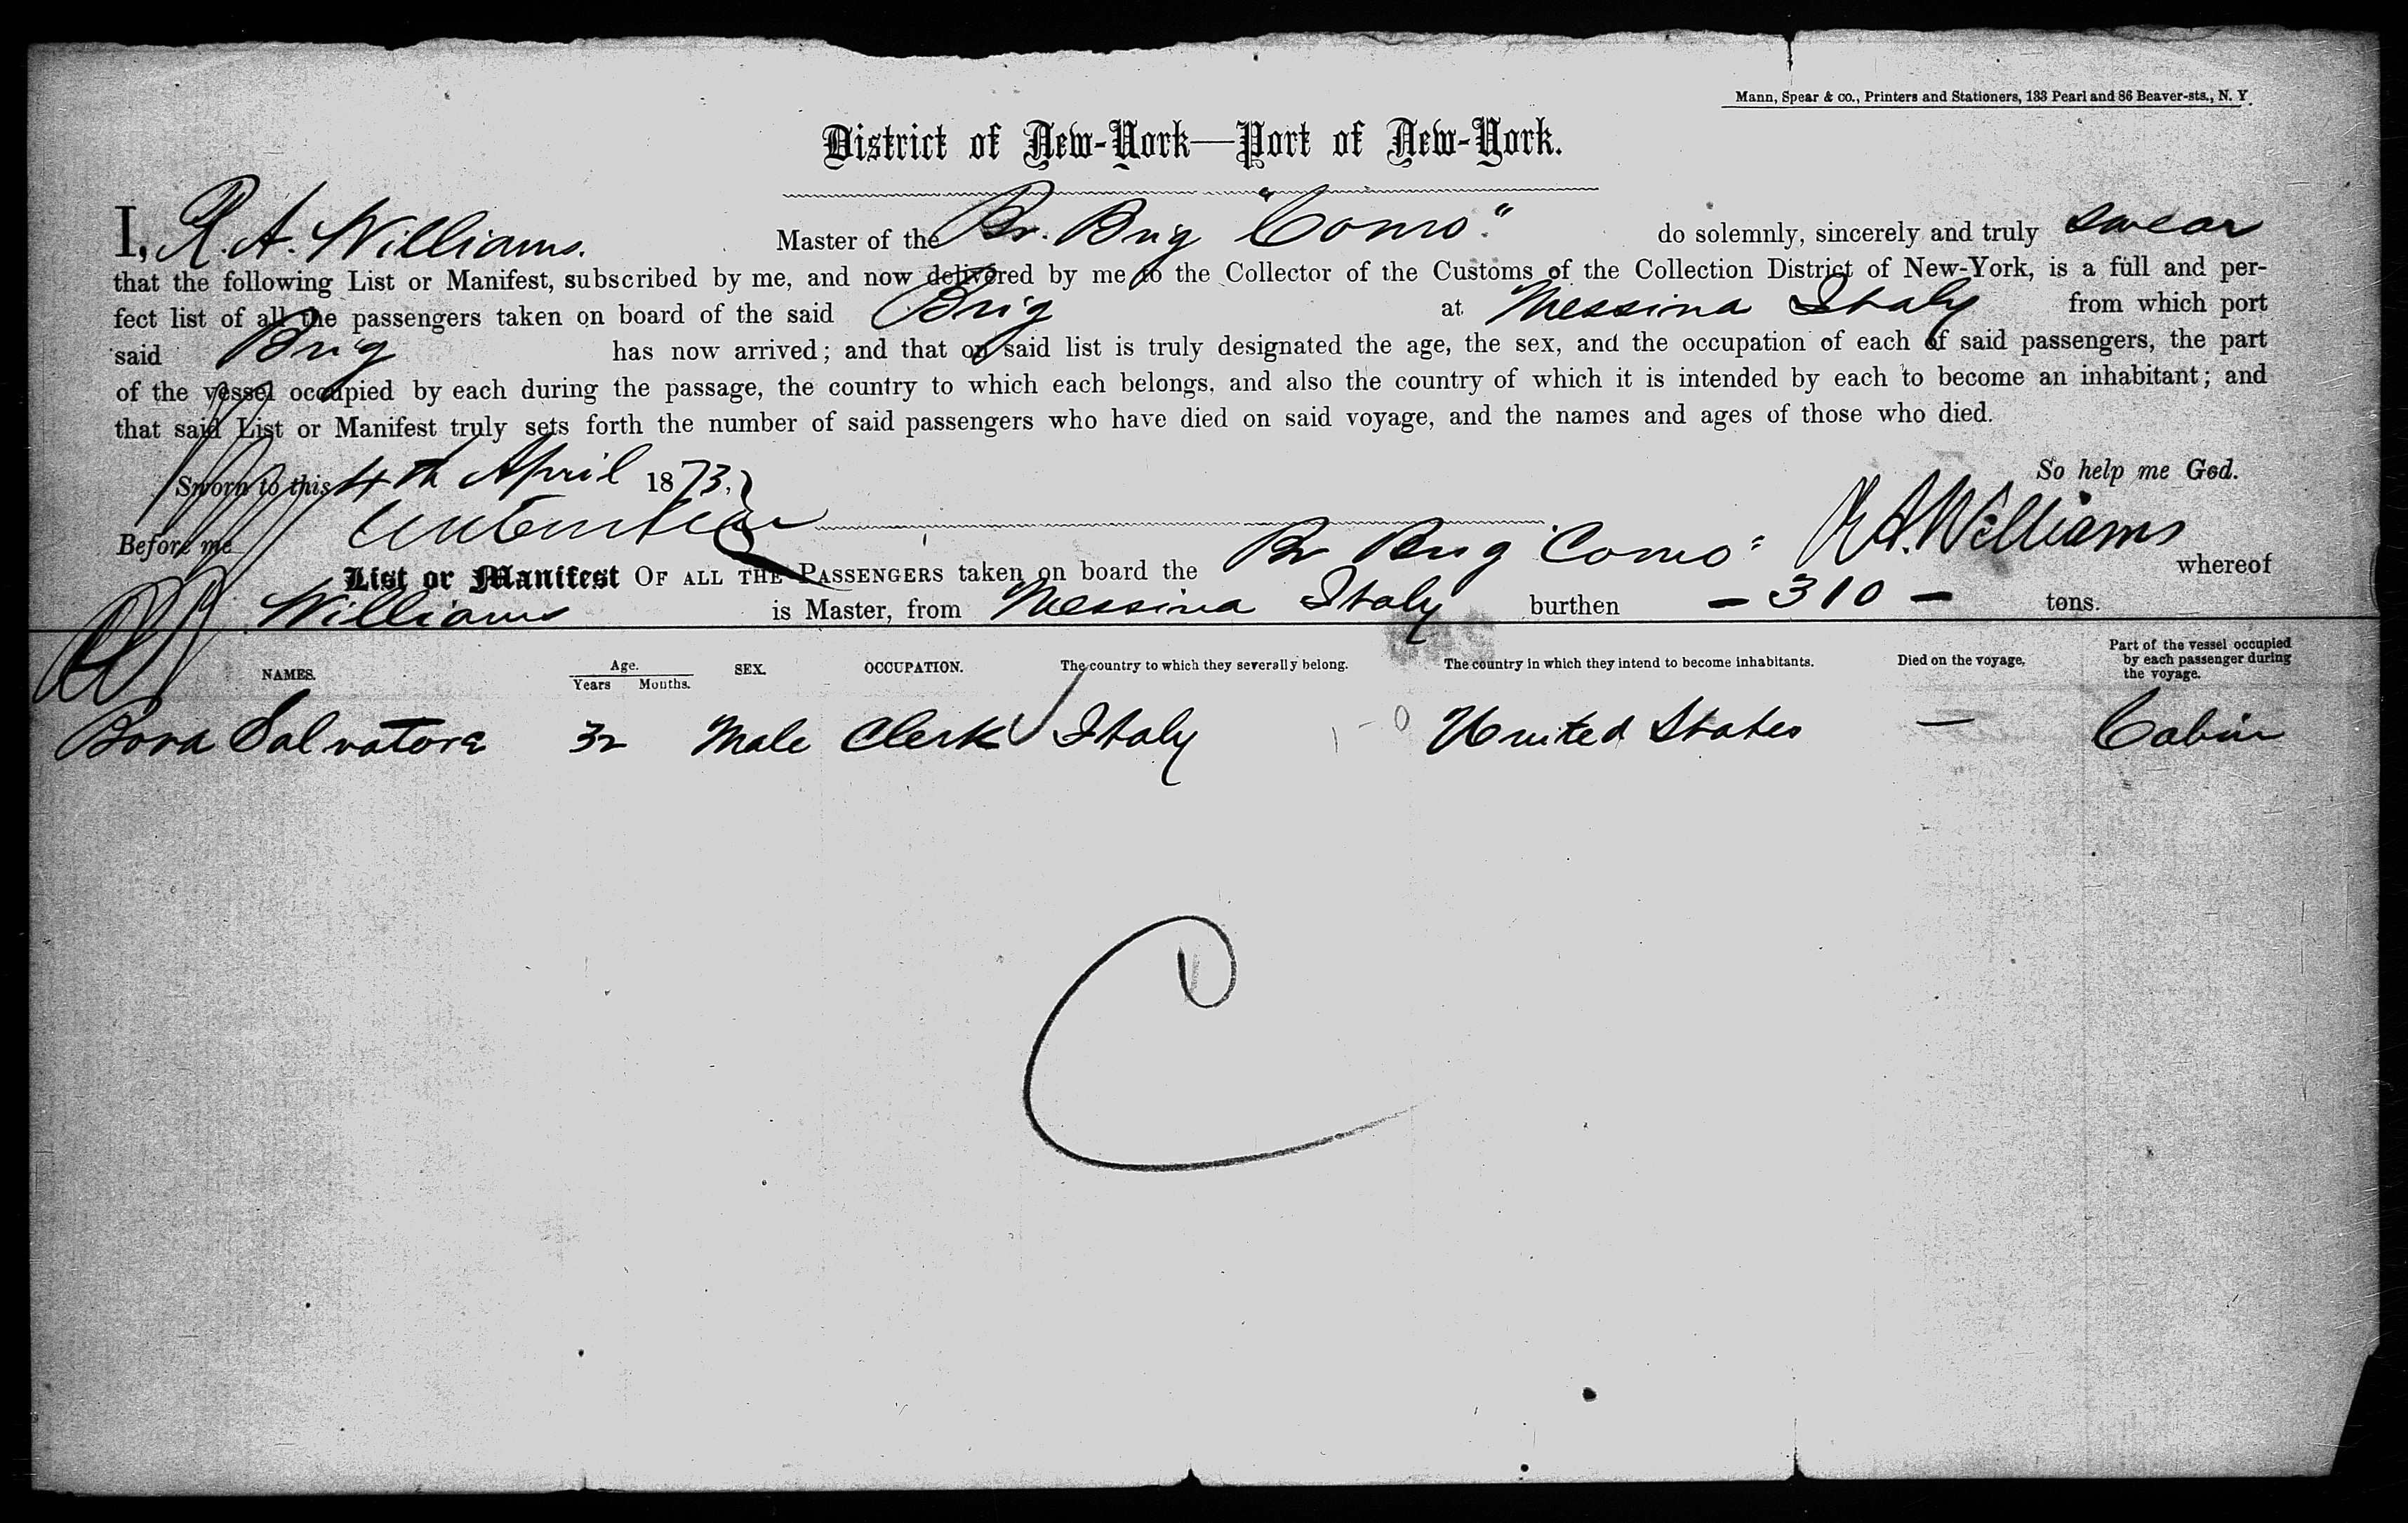 Mann, Spear & co., Printers and Stationers, 133 Pearl and 86 Beaver-sts., N. Y.
District of New-York—Port of New-York.
I, R. A. Williams. Master of the Br. Brig "Como" do solemnly, sincerely and truly swear
that the following List or Manifest, subscribed by me, and now delivered by me to the Collector of the Customs of the Collection District of New-York, is a full and per-
fect list of all the passengers taken on board of the said Brig at Messina Italy from which port
said Brig has now arrived; and that on said list is truly designated the age, the sex, and the occupation of each of said passengers, the part
of the vessel occupied by each during the passage, the country to which each belongs, and also the country of which it is intended by each to become an inhabitant; and
that said List or Manifest truly sets forth the number of said passengers who have died on said voyage, and the names and ages of those who died.
Sworn to this 4th April 1873, So help me God.
Before me R A. Williams
List or Manifest OF ALL THE PASSENGERS taken on board the Br Brig "Como" whereof
Williams is Master, from Messina Italy burthen - 310 - tons.
NAMES. Age. Years Months. SEX. OCCUPATION. The country to which they severally belong. The country in which they intend to become inhabitants. Died on the voyage. Part of the vessel occupied by each passenger during the voyage.
Bova Salvatore 32 Male Clerk Italy 1 - 0 United States — Cabin
C